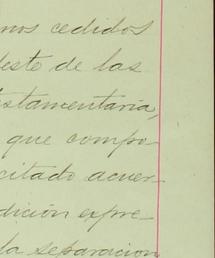 nos cedidos
deste de las
testamentaria,
que compo-
citado acuer-
dición expre-
la separacion